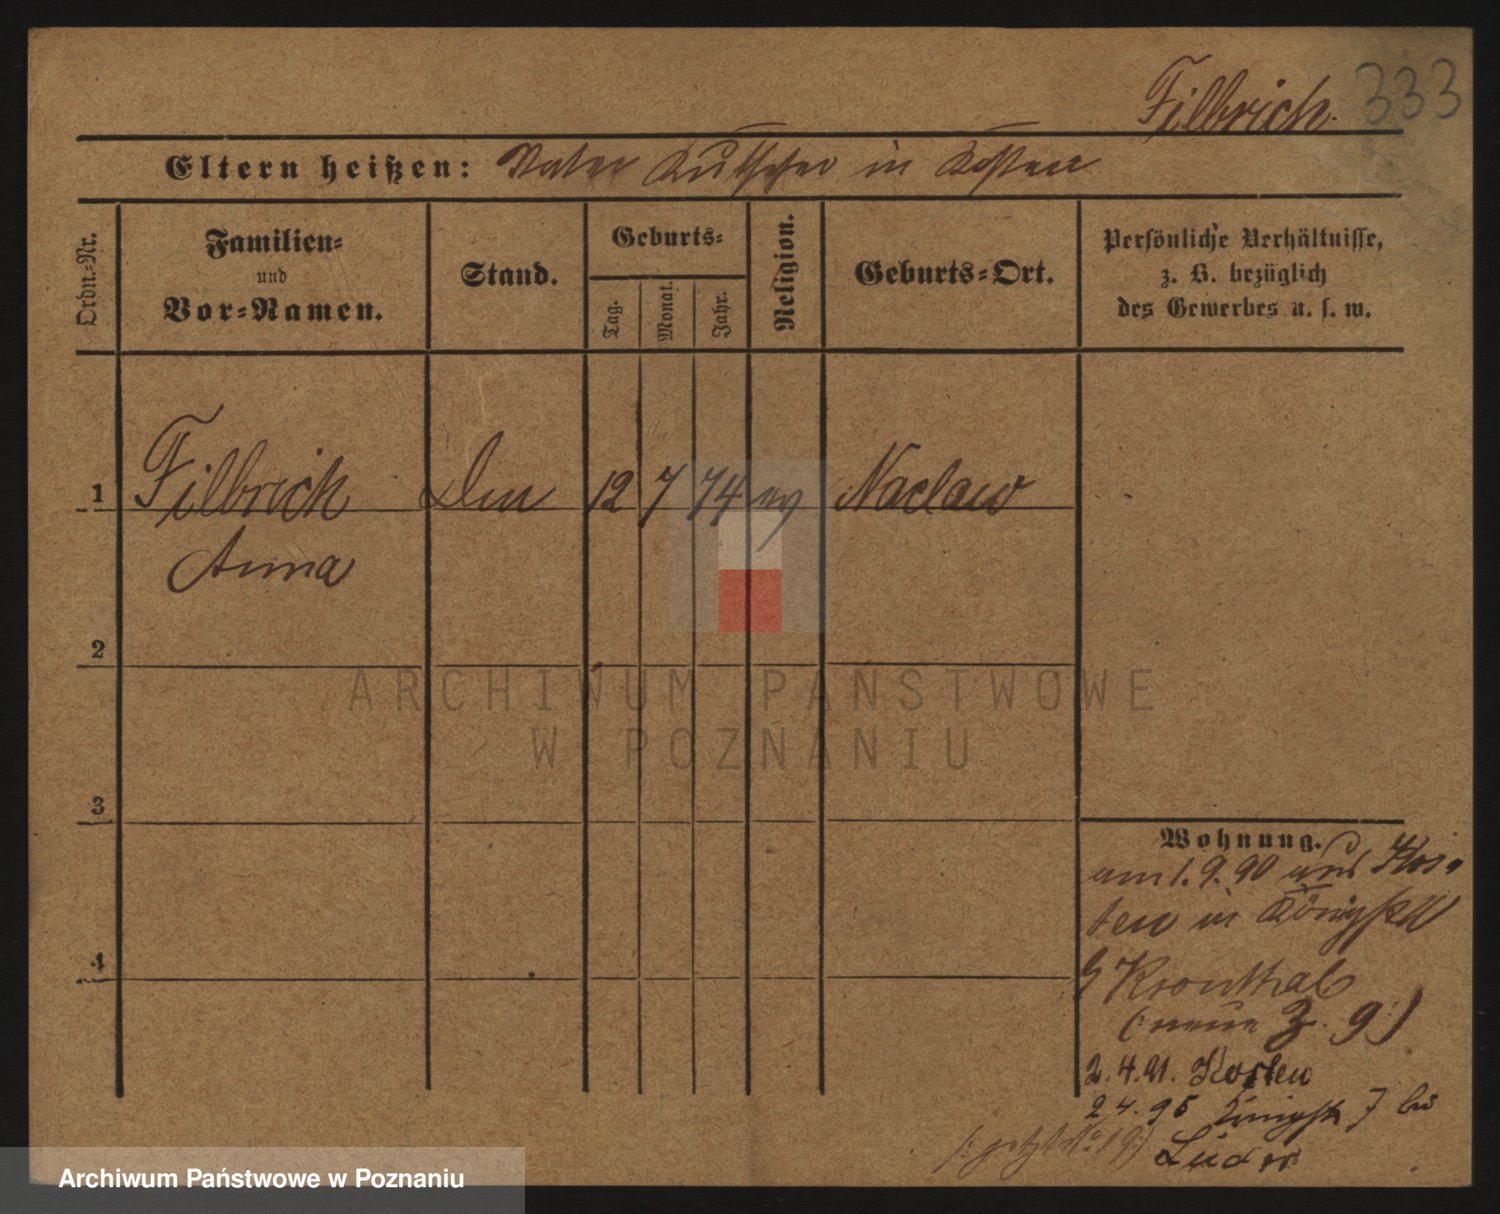 Filbrich. 333
Eltern heißen: Vater Kutscher in Kosten
Ordn.=Nr.
Familien=
und
Vor=Namen.
Stand.
Geburts=
Tag.
Monat.
Jahr.
Religion.
Geburts=Ort.
Persönliche Verhältnisse,
z. B. bezüglich
des Gewerbes u. s. w.
1 Filbrich 12 7 74 ev Naclaw
Anna
2
3
4
Wohnung.
am 1. 9. 90 aus Kos-
ten in Königstr
9 Kronthal
(: neue 9:)
2. 4. 91. Kosten
2 4. 95 Königstr 7 bei
(: jetzt No 19:) Lüder
ARCHIWUM PAŃSTWOWE
W POZNANIU
Archiwum Państwowe w Poznaniu